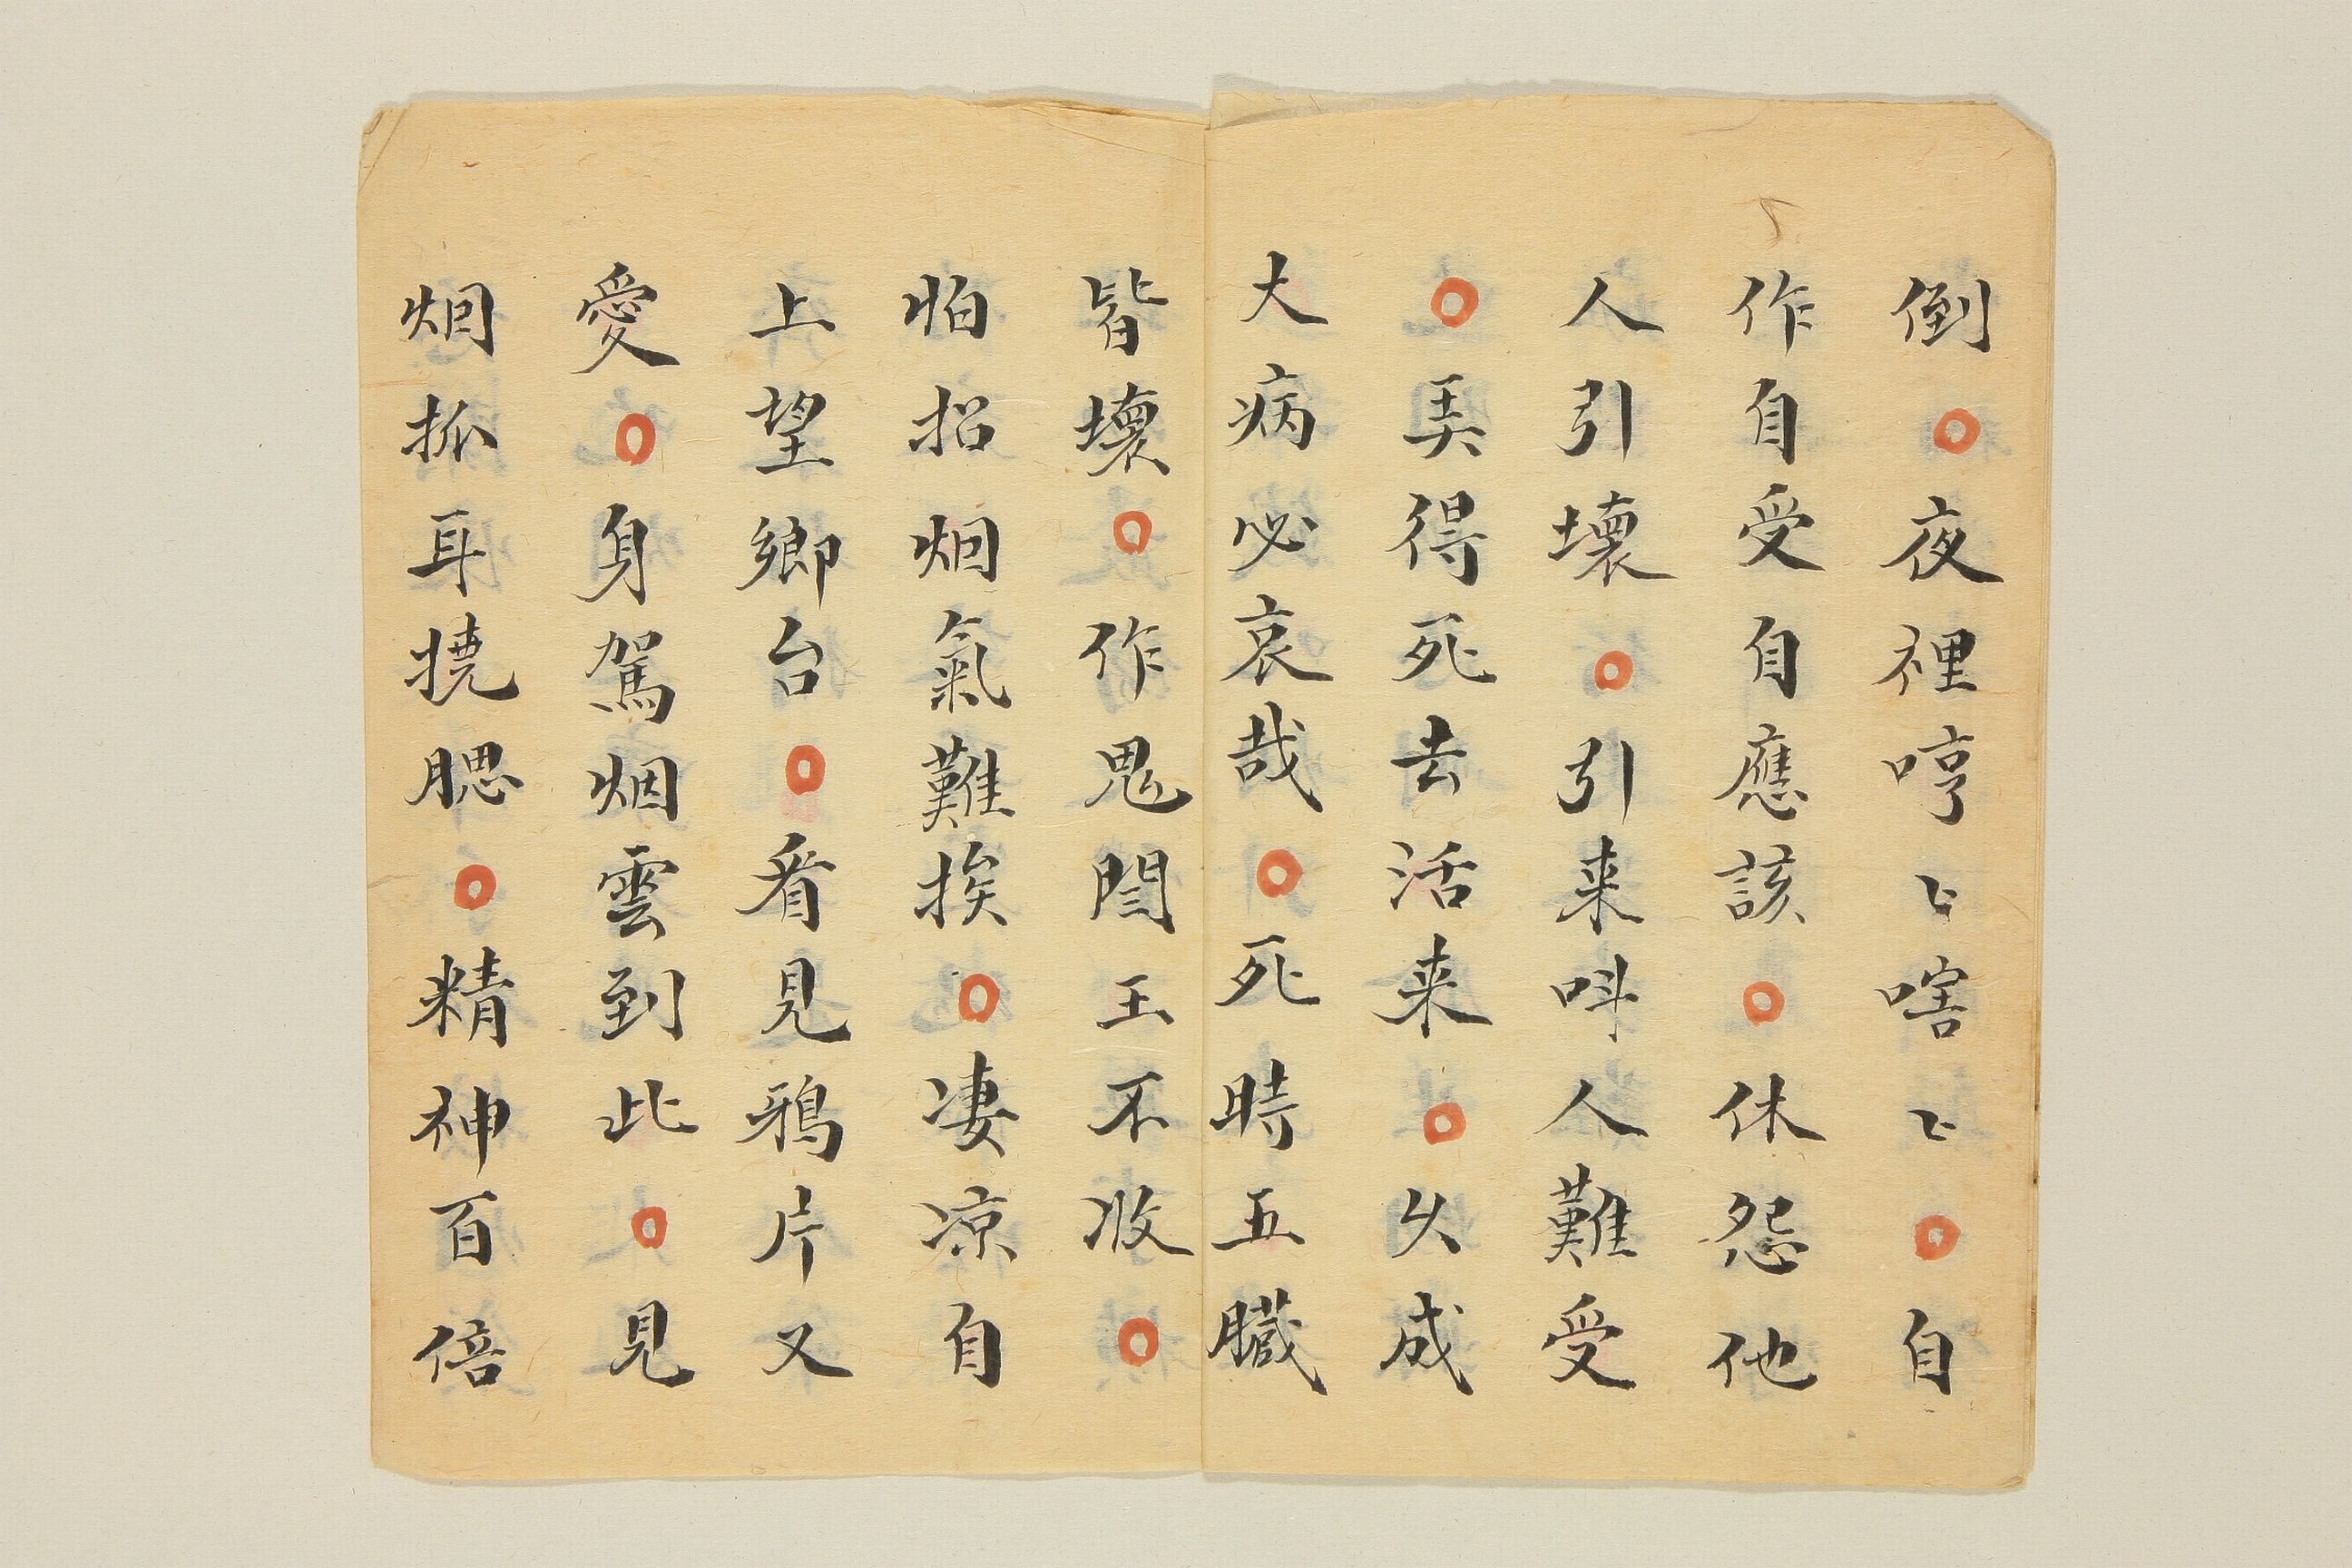 倒○夜裡哼〻嗐〻○自
作自受自應該○休怨他
人引壞○引来呌人難受
○美得死去活来○乆成
大病必哀哉○死時五臓
皆壞○作鬼閆王不收○
怕招烟氣難挨○凄凉自
上望鄉台○看見鴉片又
愛○身駕烟雲到此○見
烟抓耳撓腮○精神百倍